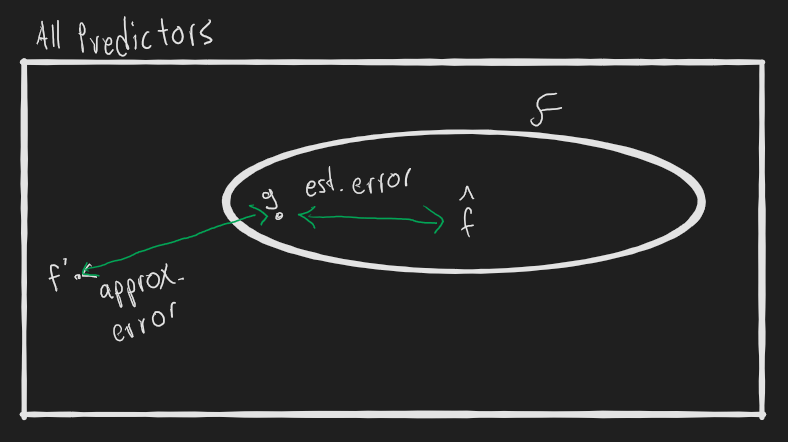 All Predictors
ℱ
g
est. error
f̂
f'
approx.
error